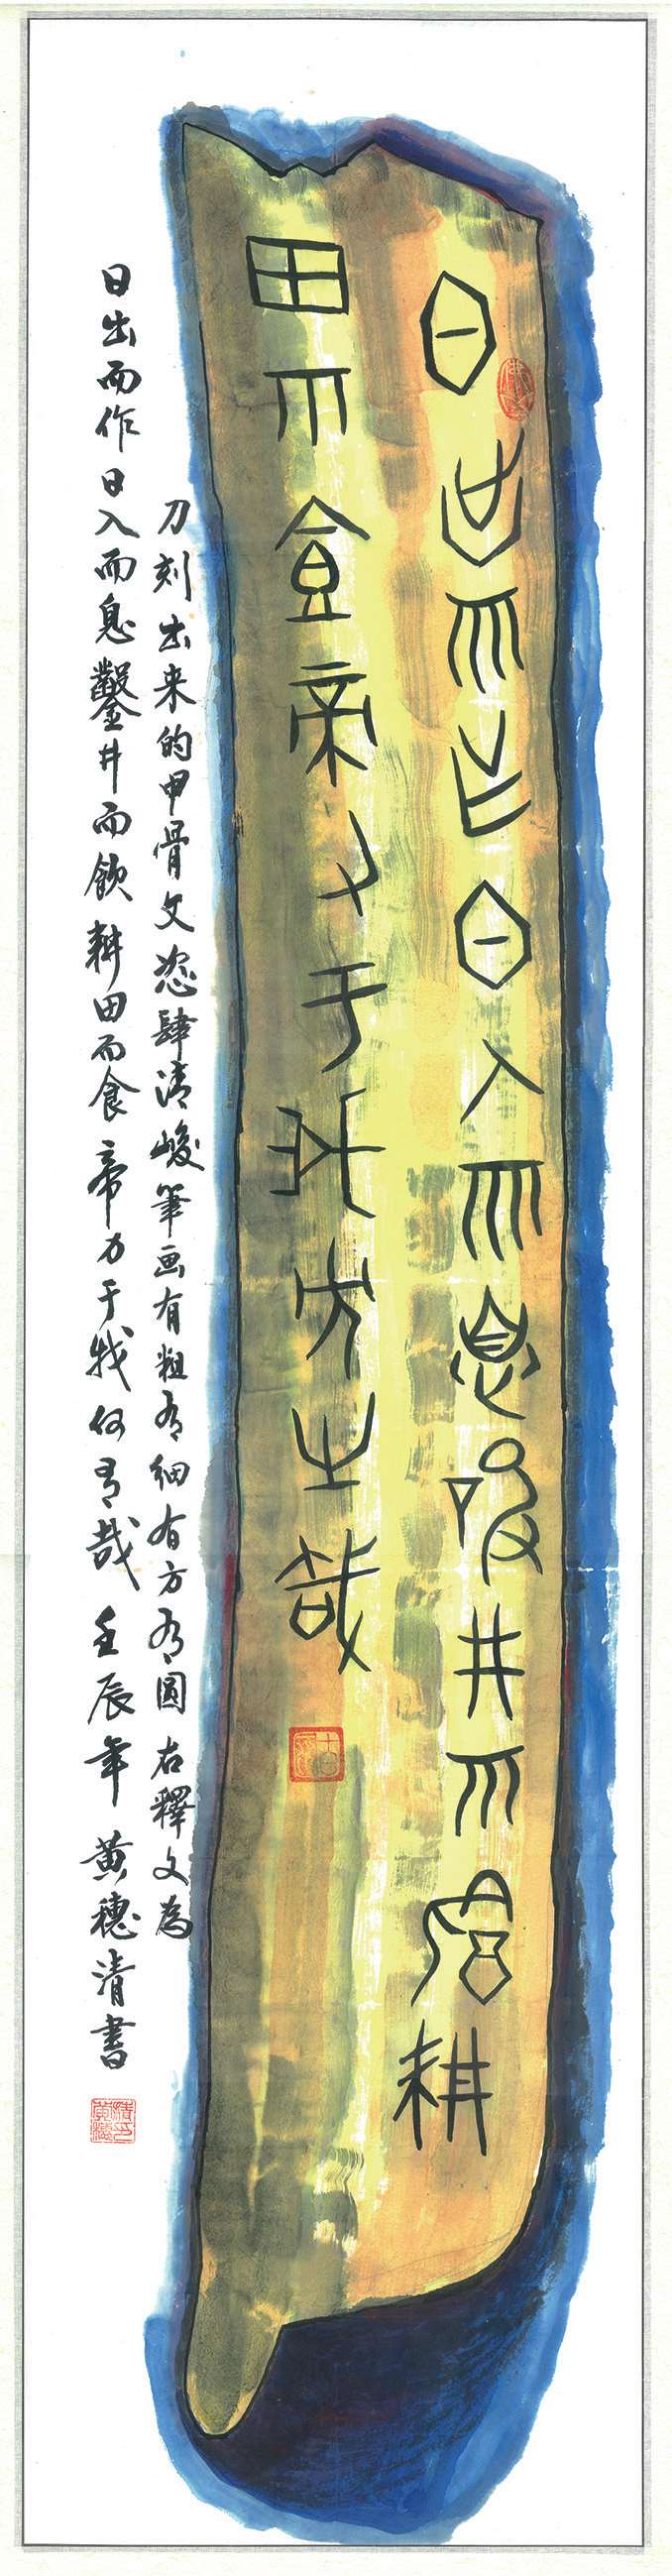 日出而作日入而息鑿井而飲耕
田而食帝力于我何有哉
刀刻出来的甲骨文恣肆清峻筆画有粗有细有方有圆右釋文為
日出而作日入而息鑿井而飲耕田而食帝力于我何有哉壬辰年黄穗清書